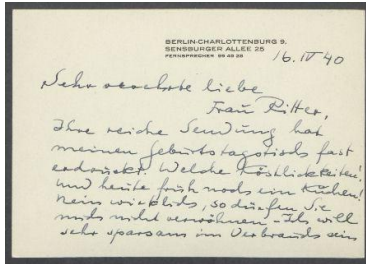 BERLIN-CHARLOTTENBURG 9.
SENSBURGER ALLEE 25
FERNSPRECHER 99 49 29
16. IV 40
Sehr verehrte liebe
Frau Ritter,
Ihre reiche Sendung hat
meinen Geburtstagstisch fast
erdrückt. Welche Köstlichkeiten!
Und heute früh noch ein Kuchen!
Nein wirklich, so dürfen Sie
mich nicht verwöhnen. Ich will
sehr sparsam im Verbrauch sein